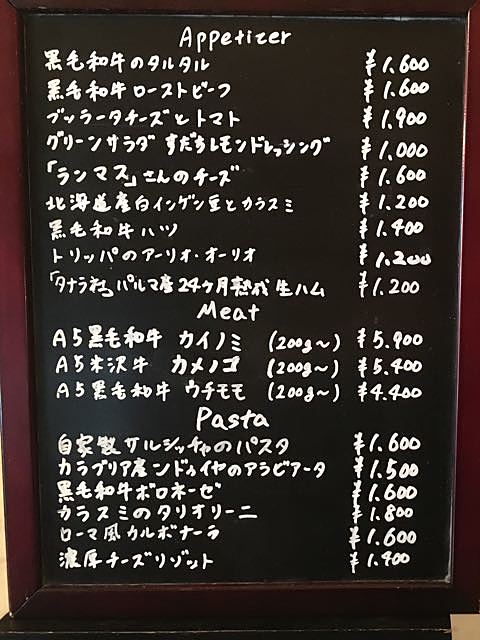 Appetizer
黒毛和牛のタルタル ¥1.600
黒毛和牛ローストビーフ ¥1.600
ブッラータチーズとトマト ¥1.900
グリーンサラダ すだちレモンドレッシング ¥1.000
「ランマス」さんのチーズ ¥1.600
北海道産白インゲン豆とカラスミ ¥1.200
黒毛和牛ハツ ¥1.400
トリッパのアーリオ・オーリオ ¥1.200
「タナラ社」パルマ産24ケ月熟成生ハム ¥1.200
Meat
A5黒毛和牛 カイノミ (200g〜) ¥5.900
A5米沢牛 カメノコ (200g〜) ¥5.400
A5黒毛和牛 ウチモモ (200g〜) ¥4.400
Pasta
自家製サルシッチャのパスタ ¥1.600
カラブリア産ンドゥイヤのアラビアータ ¥1.500
黒毛和牛ボロネーゼ ¥1.600
カラスミのタリオリーニ ¥1.800
ローマ風カルボナーラ ¥1.600
濃厚チーズリゾット ¥1.400